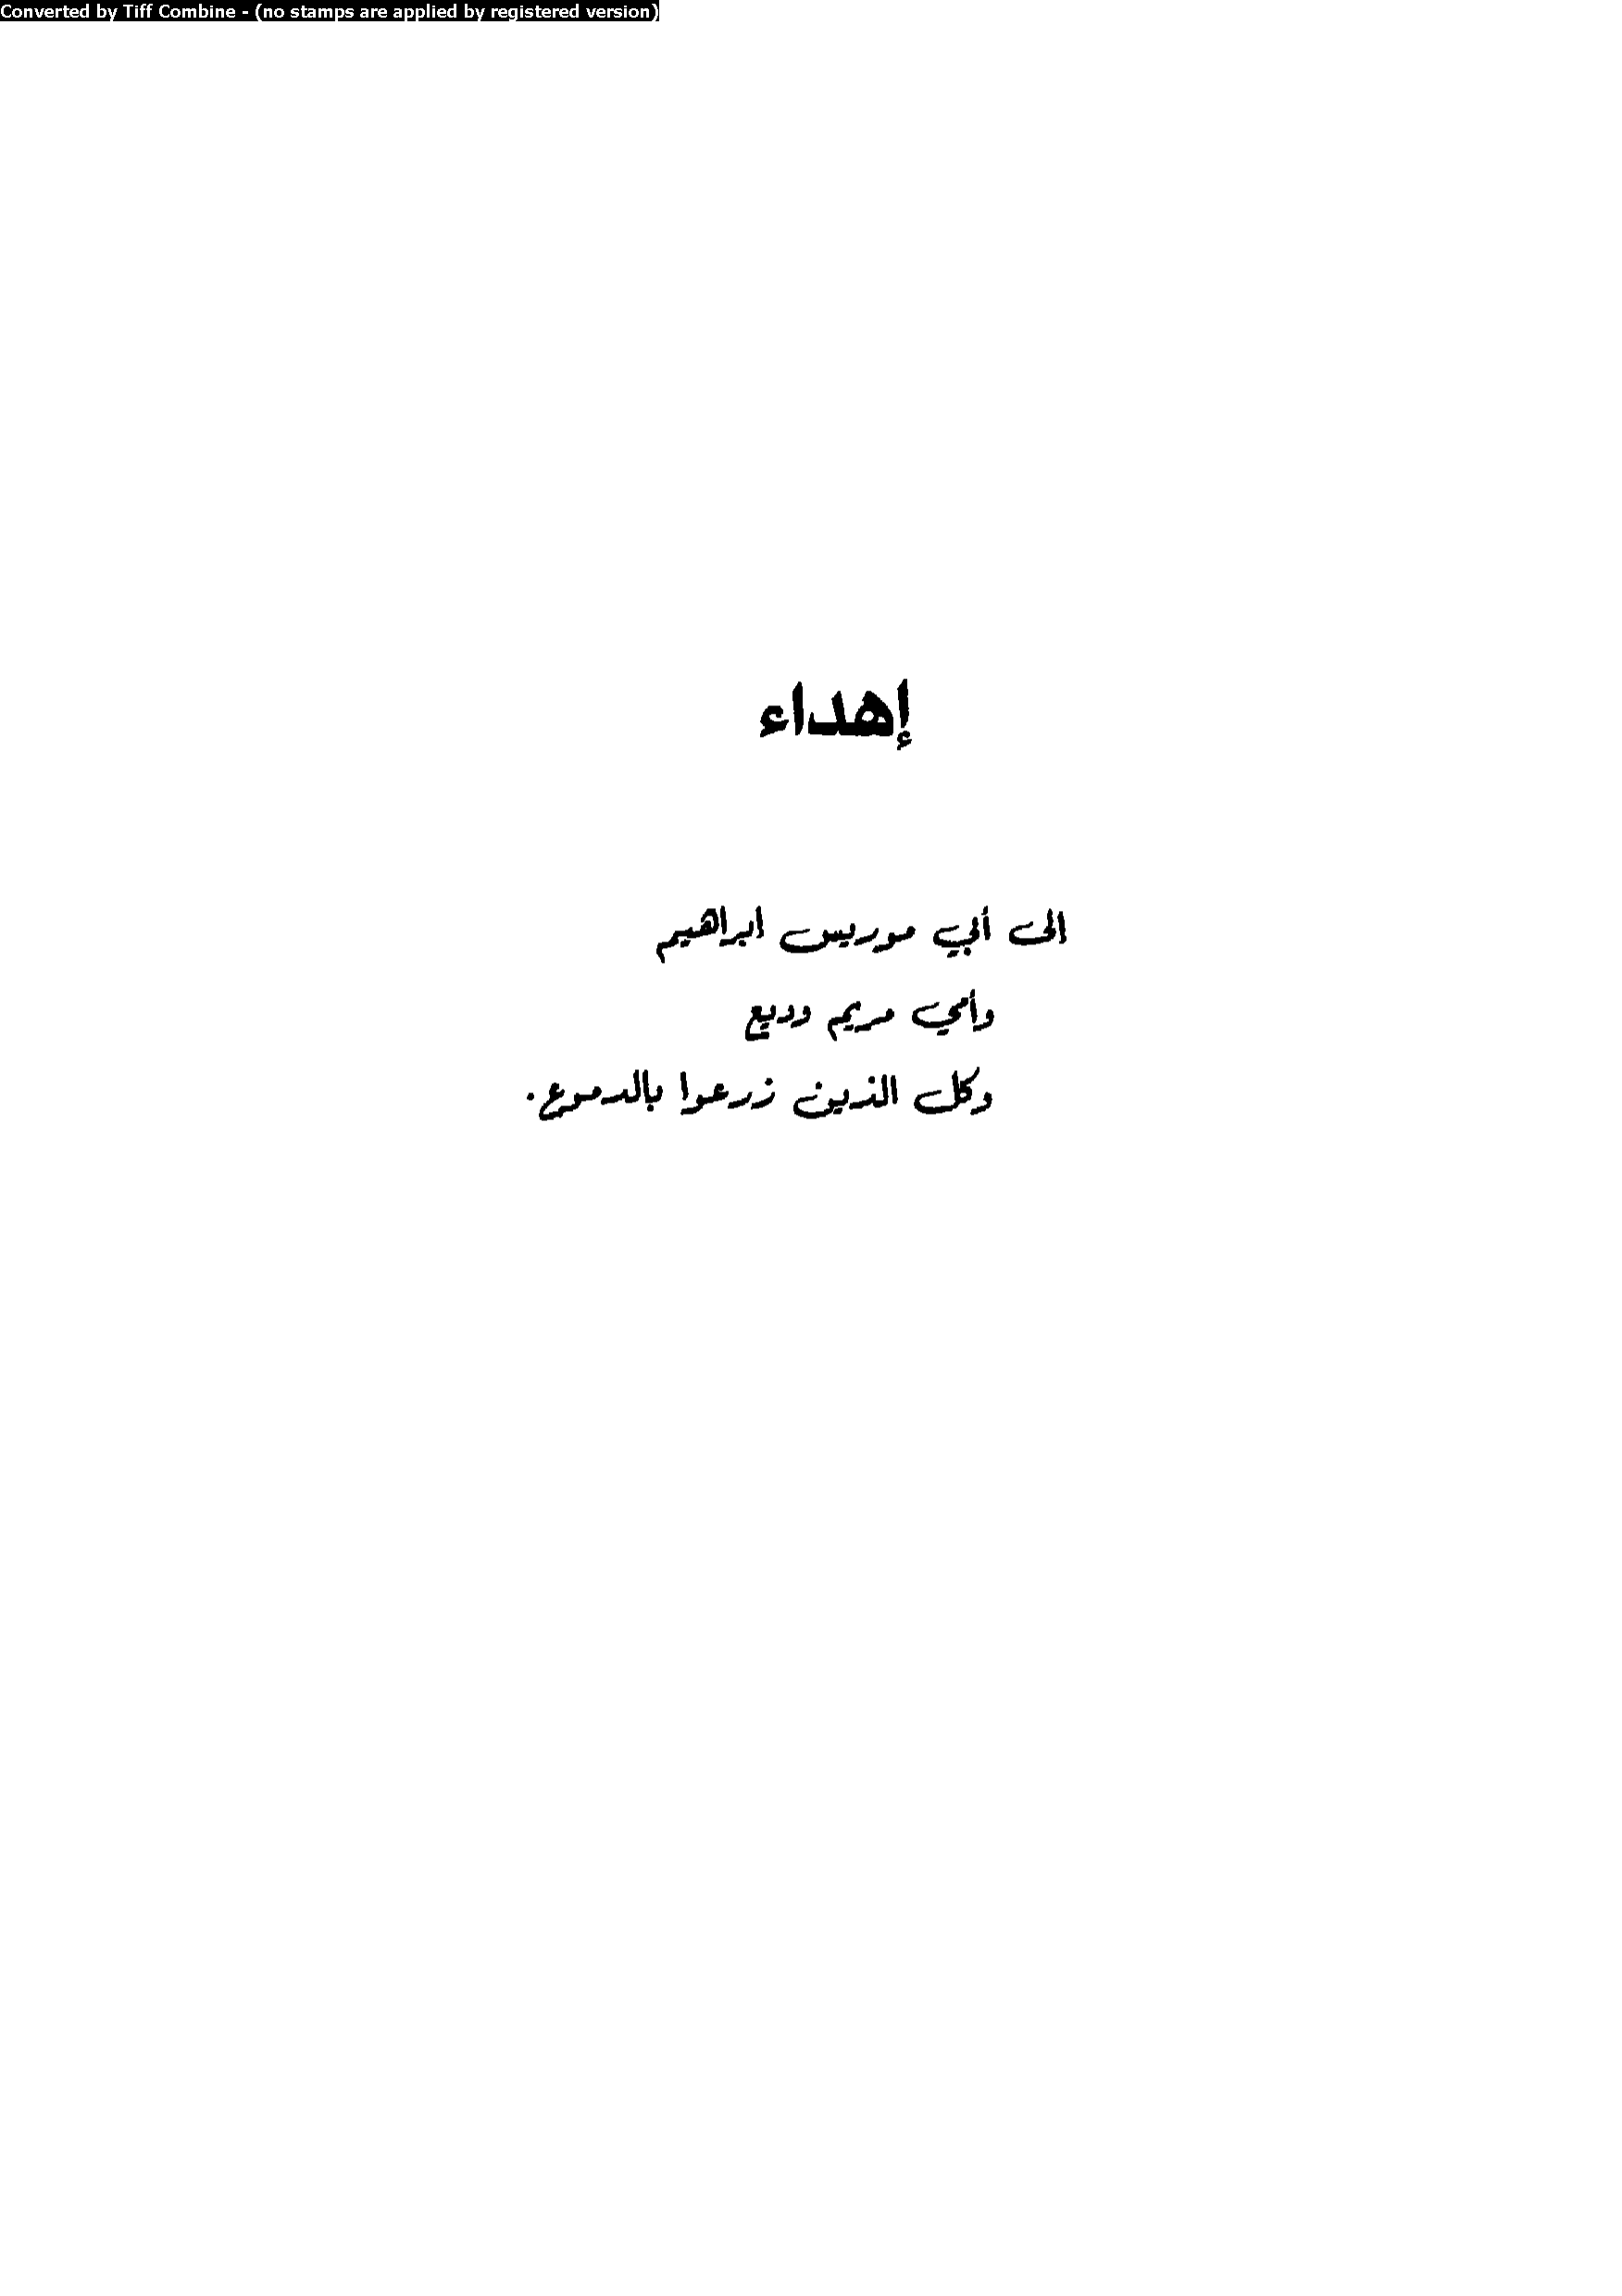 Converted by Tiff Combine - (no stamps are applied by registered version)
إهداء
الى أبي موريس ابراهيم
وأمي مريم وديع
وكل الذين زرعوا بالدموع.